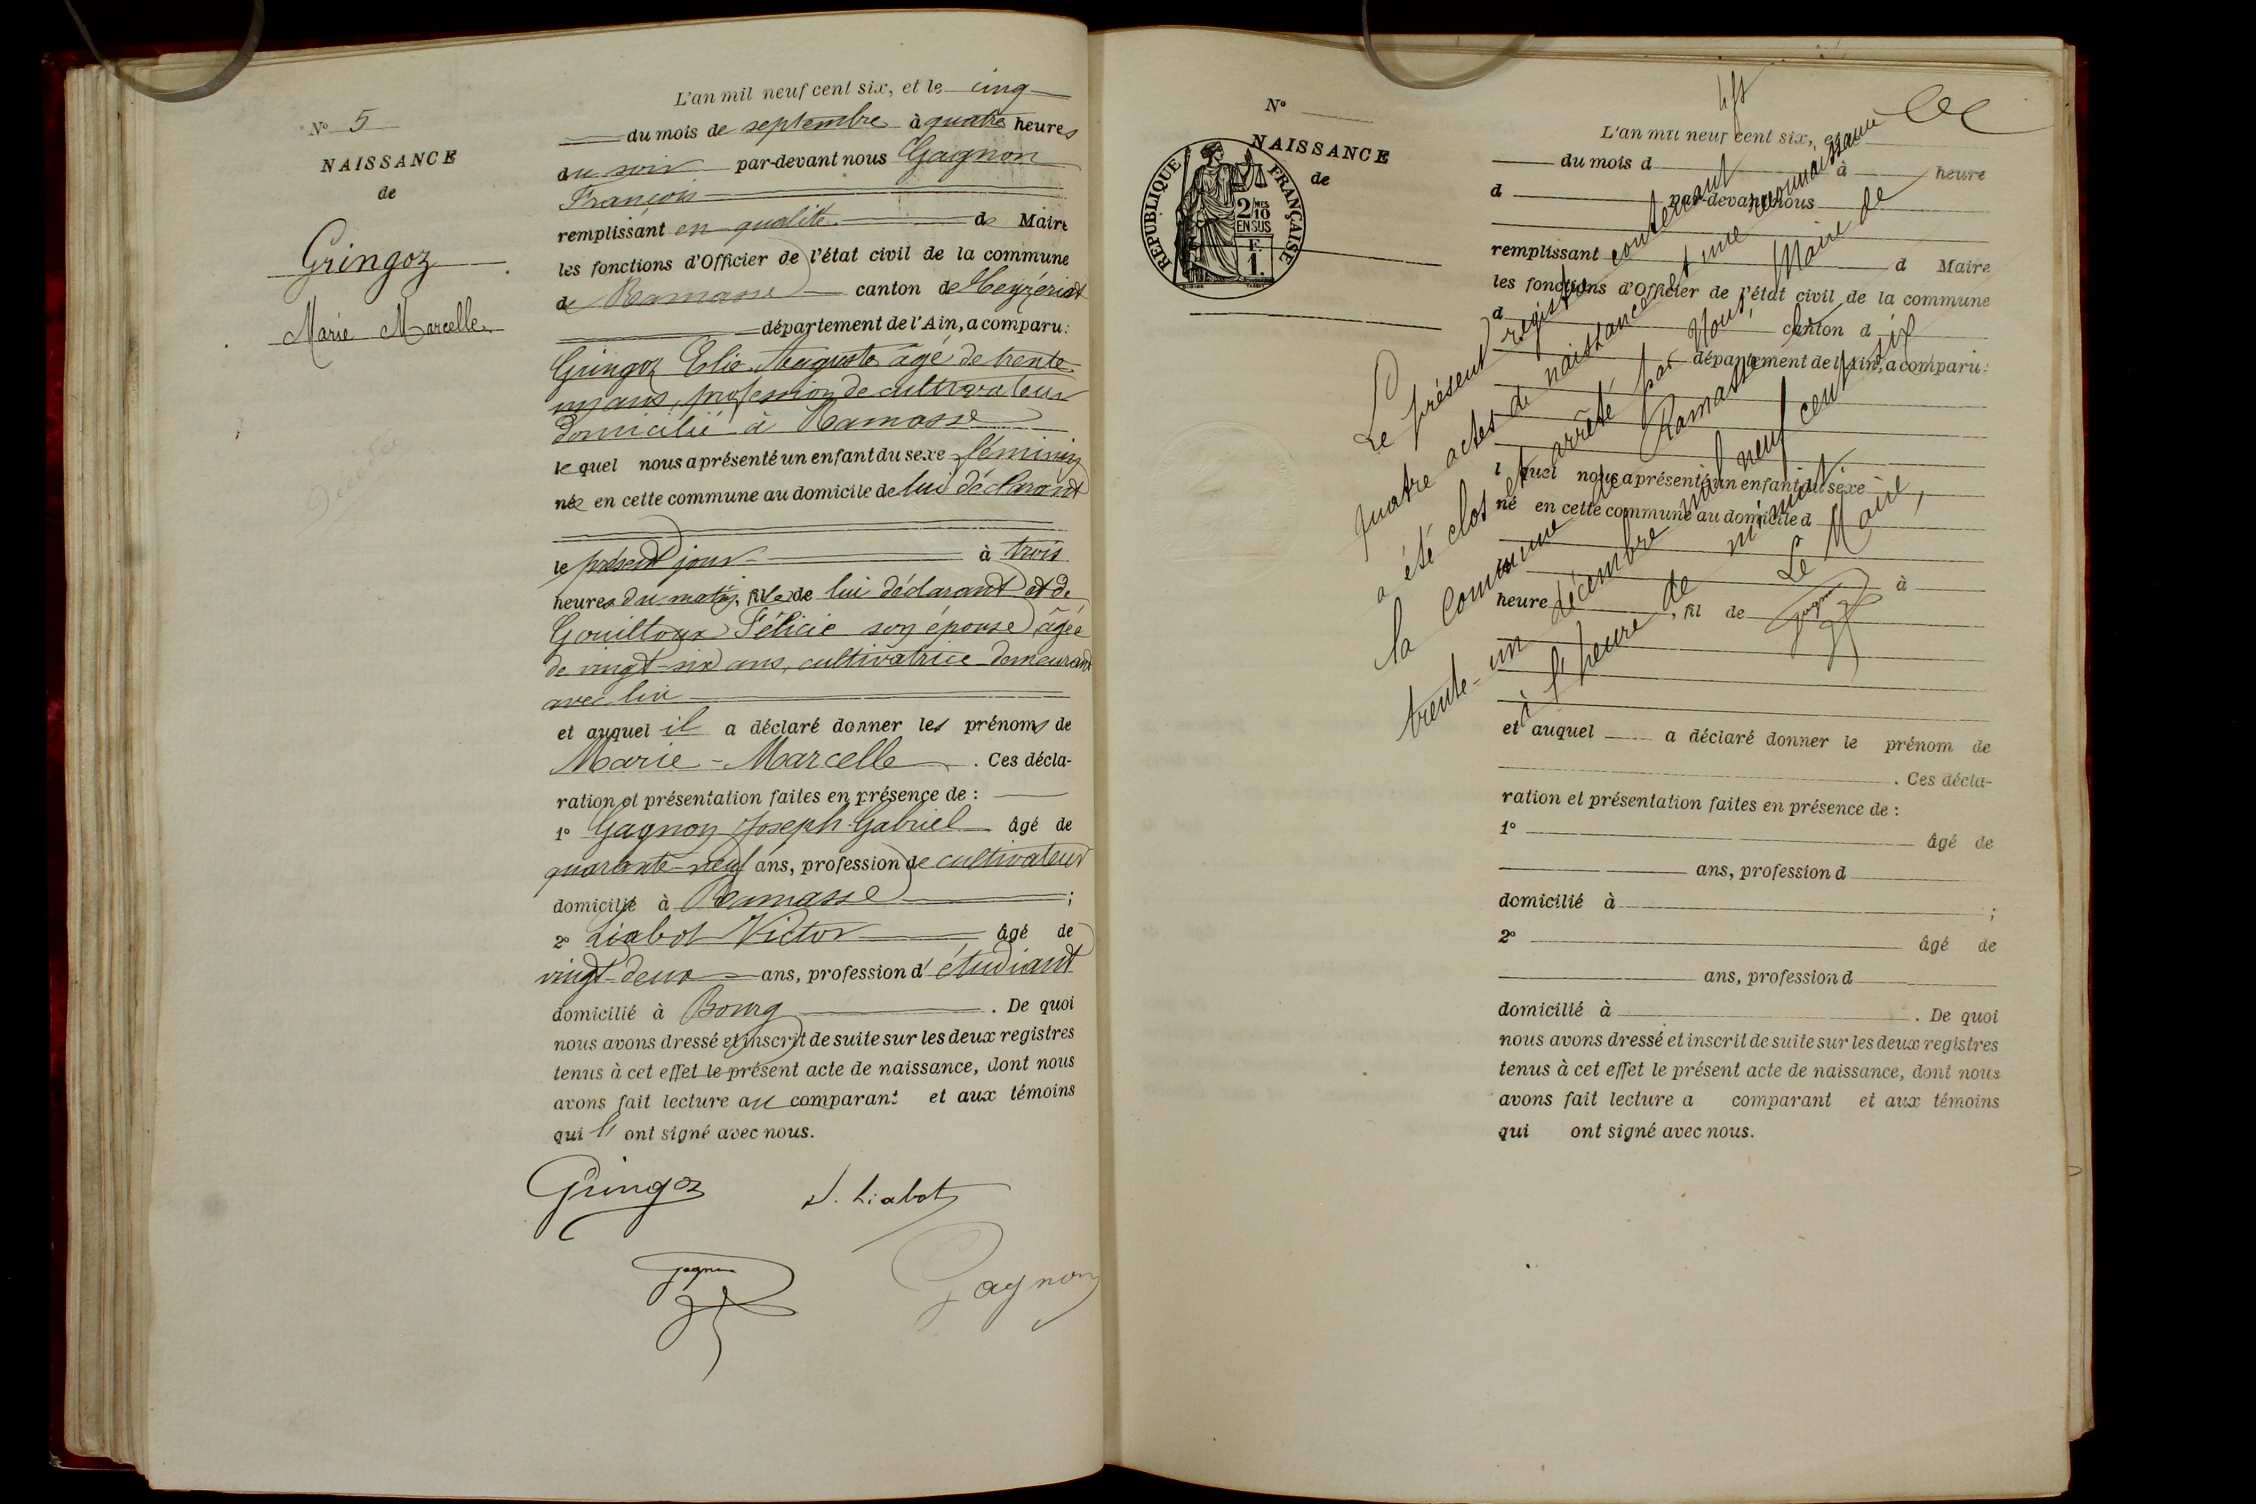 N° 5
NAISSANCE
de
Gringoz
Marie Marcelle
Décédée
L'an mil neuf cent six, et le cinq
du mois de septembre à quatre heures
du soir par-devant nous Gagnon
François
remplissant en qualité de Maire
les fonctions d'Officier de l'état civil de la commune
de Ramasse canton de Ceyzériat
département de l'Ain, a comparu:
Gringoz Elie Auguste âgé de trente
un ans, profession de cultivateur
domicilié à Ramasse
lequel nous a présenté un enfant du sexe féminin
née en cette commune au domicile de lui déclarant
le présent jour à trois
heures du matin, fille de lui déclarant et de
Gouilloux Félicie son épouse âgée
de vingt-six ans, cultivatrice demeurant
avec lui
et auquel il a déclaré donner les prénoms de
Marie-Marcelle. Ces décla-
ration et présentation faites en présence de:
1° Gagnon Joseph-Gabriel âgé de
quarante-neuf ans, profession de cultivateur
domicilié à Ramasse;
2° Liabot Victor âgé de
vingt-deux ans, profession d'étudiant
domicilié à Bourg. De quoi
nous avons dressé et inscrit de suite sur les deux registres
tenus à cet effet le présent acte de naissance, dont nous
avons fait lecture au comparant et aux témoins
qui l' ont signé avec nous.
Gringoz V. Liabot
gagnon Gagnon
N°
NAISSANCE
de
RÉPUBLIQUE FRANÇAISE
2/10 MES
EN SUS
F.
1.
L'an mil neuf cent six, et le
du mois d à heure
d par-devant nous
remplissant d Maire
les fonctions d'Officier de l'état civil de la commune
d canton d
département de l'Ain, a comparu:
l quel nous a présenté un enfant du sexe
né en cette commune au domicile d
le à
heure , fil de
et auquel a déclaré donner le prénom de
. Ces décla-
ration et présentation faites en présence de:
1° âgé de
ans, profession d
domicilié à ;
2° âgé de
ans, profession d
domicilié à . De quoi
nous avons dressé et inscrit de suite sur les deux registres
tenus à cet effet le présent acte de naissance, dont nous
avons fait lecture a comparant et aux témoins
qui ont signé avec nous.
Le présent registre contenant
quatre actes de naissance et une reconnaissance
a été clos et arrêté par Nous, Maire de
la commune de Ramasse, le
trente-un décembre mil neuf cent six
à l'heure de minuit
Le Maire,
gagnon